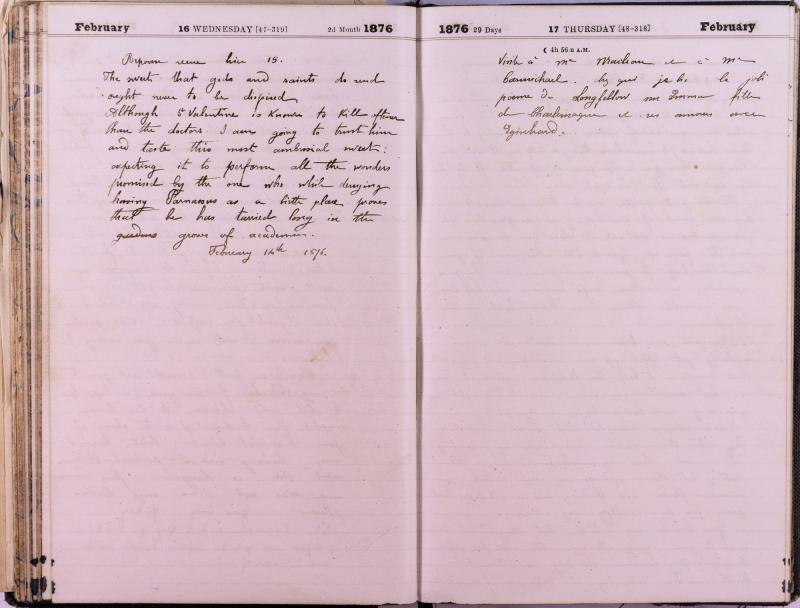 February 16 WEDNESDAY [47-319] 2d Month 1876
15.
The sweets that gods and saints do send
ought never to be dispised
Although St Valentine is known to kill oftener
than the doctors. I am going to trust him
and taste this most ambrosial sweet:
expecting it to perform all the wonders
promised by the one who while denying
having Parnassus as a birth place proves
that he has tarried long in the
grove of academus.
February 14th 1876.
1876 29 Days 17 THURSDAY [48-318] February
☾ 4h 56m A.M.
Visite à Mme et à Mme
Carmichael. je lis le joli
poème de Longfellow sur Emma fille
de Charlemagne et ses amours avec
Eginhard.